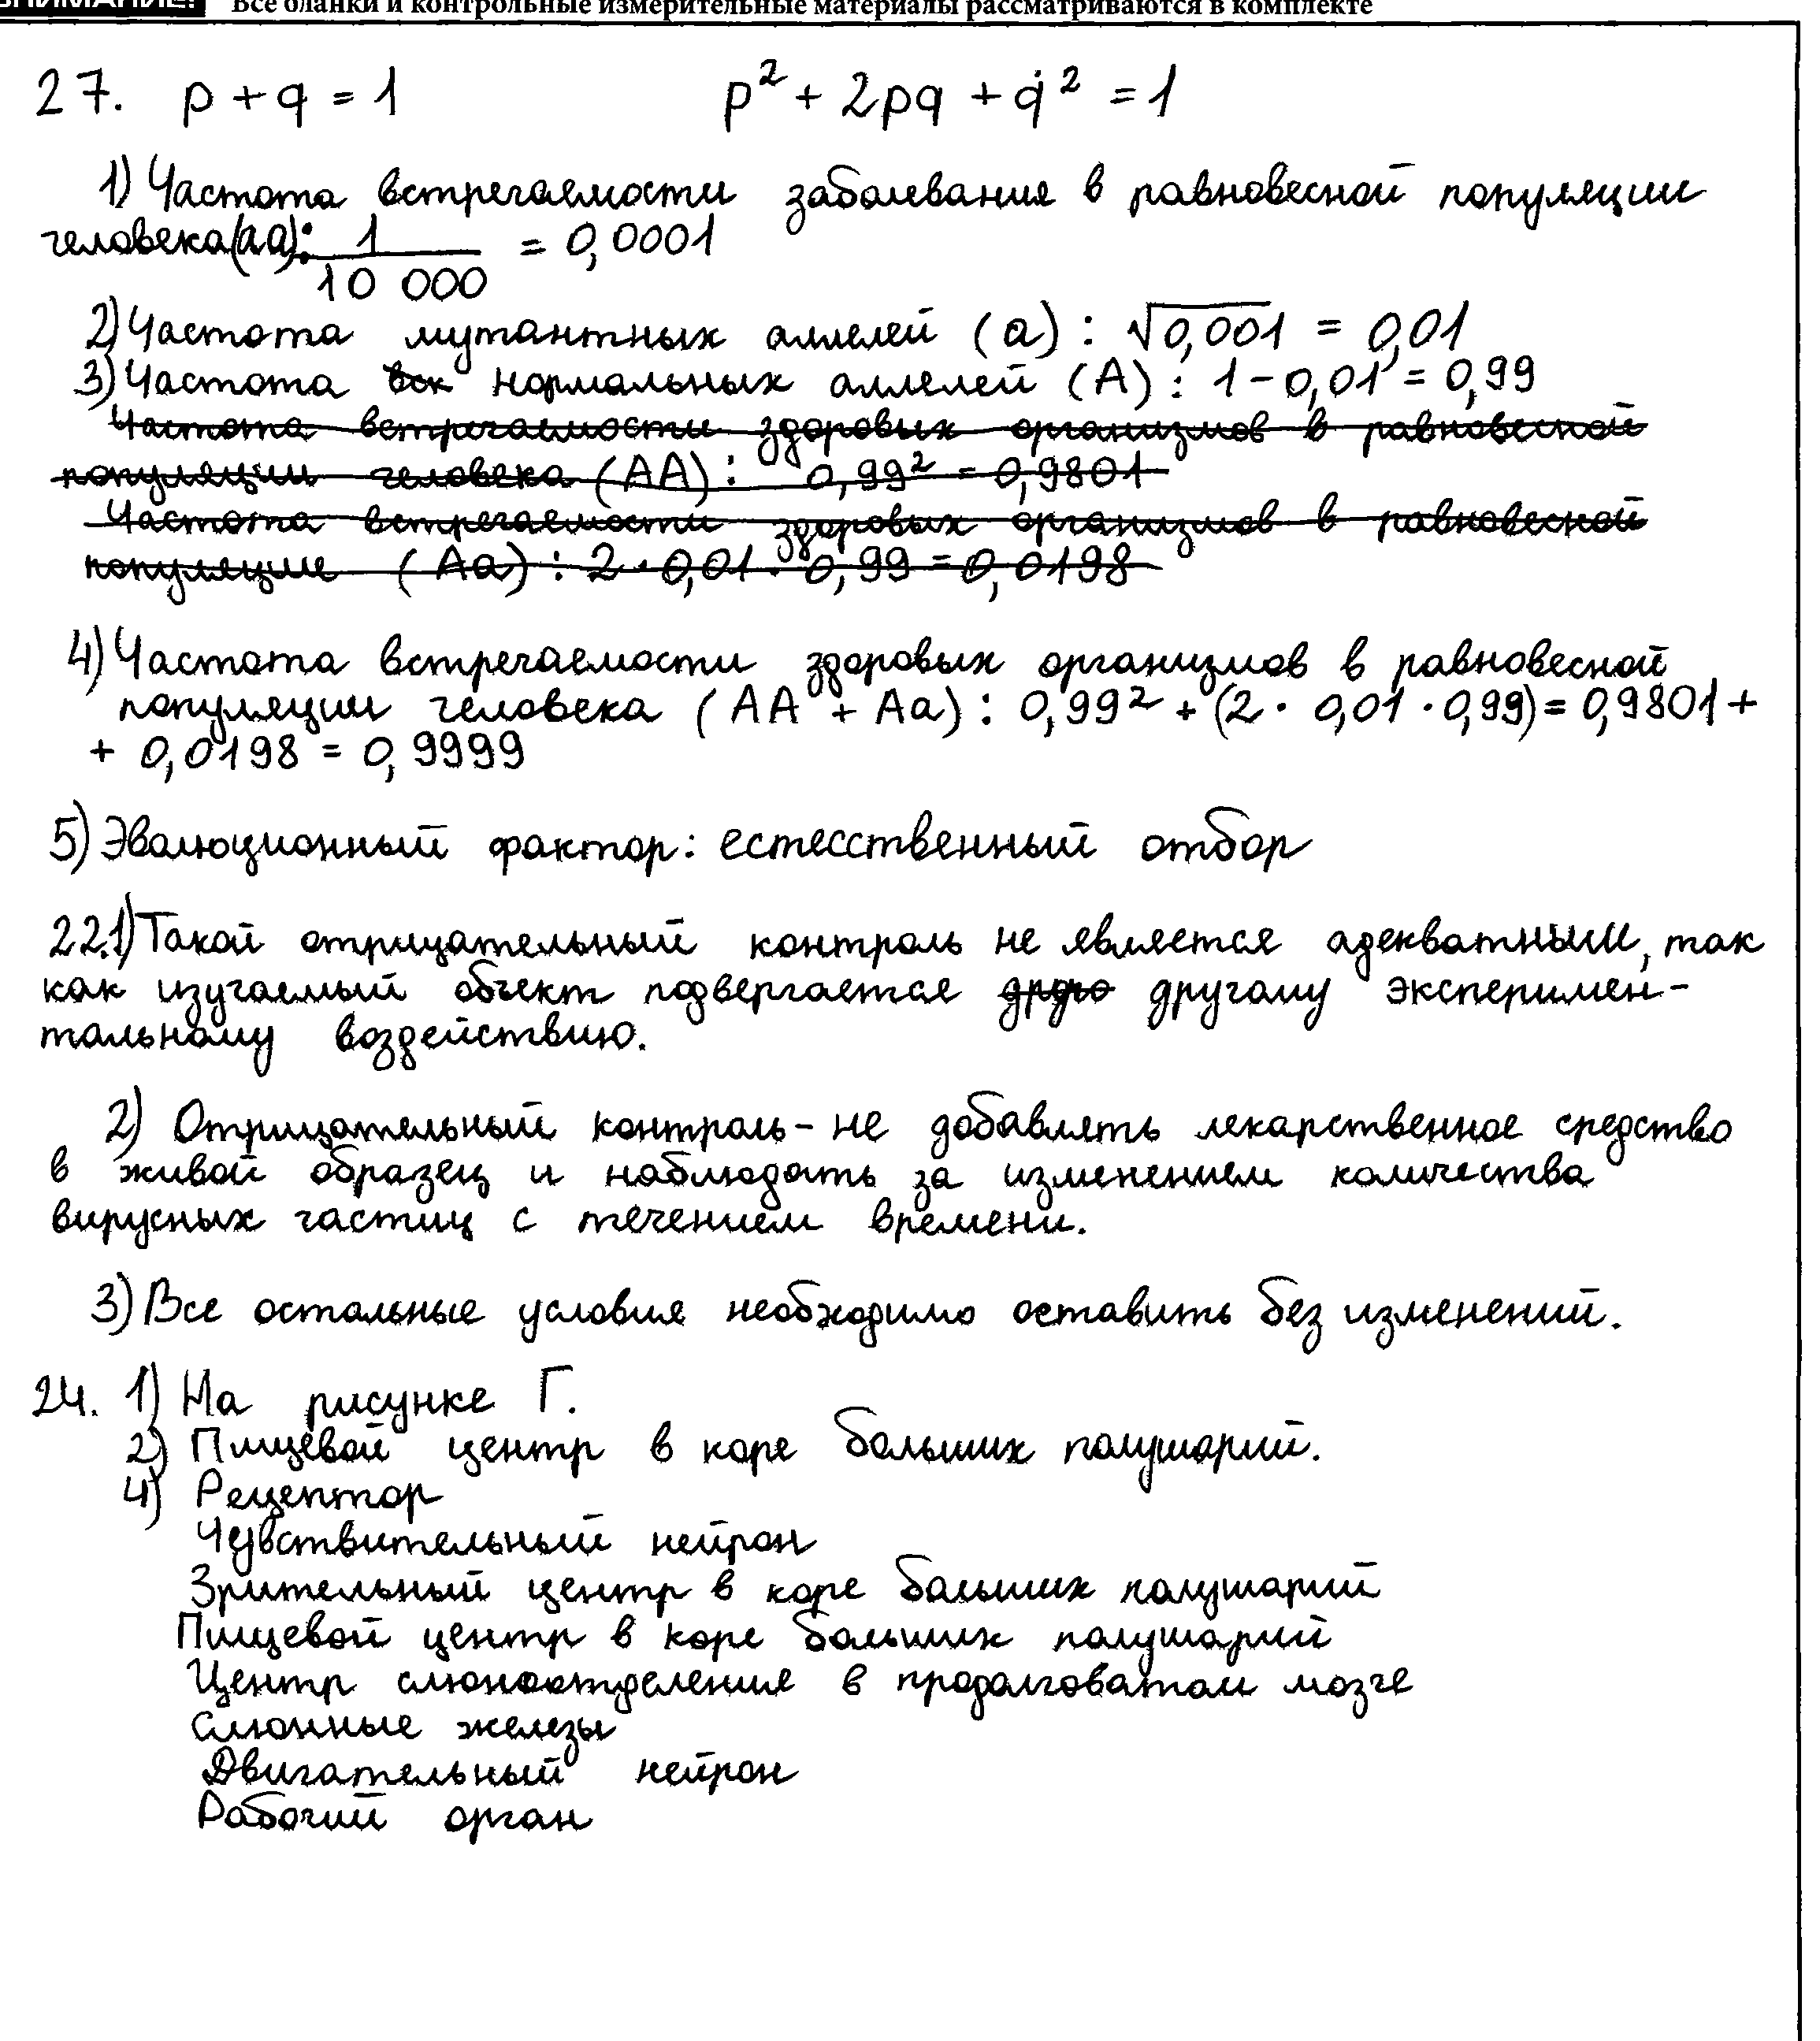 ВНИМАНИЕ! Все бланки и контрольные измерительные материалы рассматриваются в комплекте
27. p + q = 1 p² + 2pq + q² = 1
1) Частота встречаемости заболевания в равновесной популяции
человека(аа): 1/10 000 = 0,0001
2) Частота мутантных аллелей (а) : √0,001 = 0,01
3) Частота вск нормальных аллелей (А) : 1 - 0,01 = 0,99
Частота встречаемости здоровых организмов в равновесной
популяции человека (АА) : 0,99² = 0,9801
Частота встречаемости здоровых организмов в равновесной
популяции (Аа) : 2 · 0,01 · 0,99 = 0,0198
4) Частота встречаемости здоровых организмов в равновесной
популяции человека (АА + Аа) : 0,99² + (2 · 0,01 · 0,99) = 0,9801 +
+ 0,0198 = 0,9999
5) Эволюционный фактор: естесственный отбор
22.1) Такой отрицательный контроль не является адекватным, так
как изучаемый объект подвергается другому эксперимен-
тальному воздействию.
2) Отрицательный контроль - не добавлять лекарственное средство
в живой образец и наблюдать за изменением количества
вирусных частиц с течением времени.
3) Все остальные условия необходимо оставить без изменений.
24. 1) На рисунке Г.
2) Пищевой центр в коре больших полушарий.
4) Рецептор
Чувствительный нейрон
Зрительный центр в коре больших полушарий
Пищевой центр в коре больших полушарий
Центр слюноотделения в продолговатом мозге
Слюнные железы
Двигательный нейрон
Рабочий орган